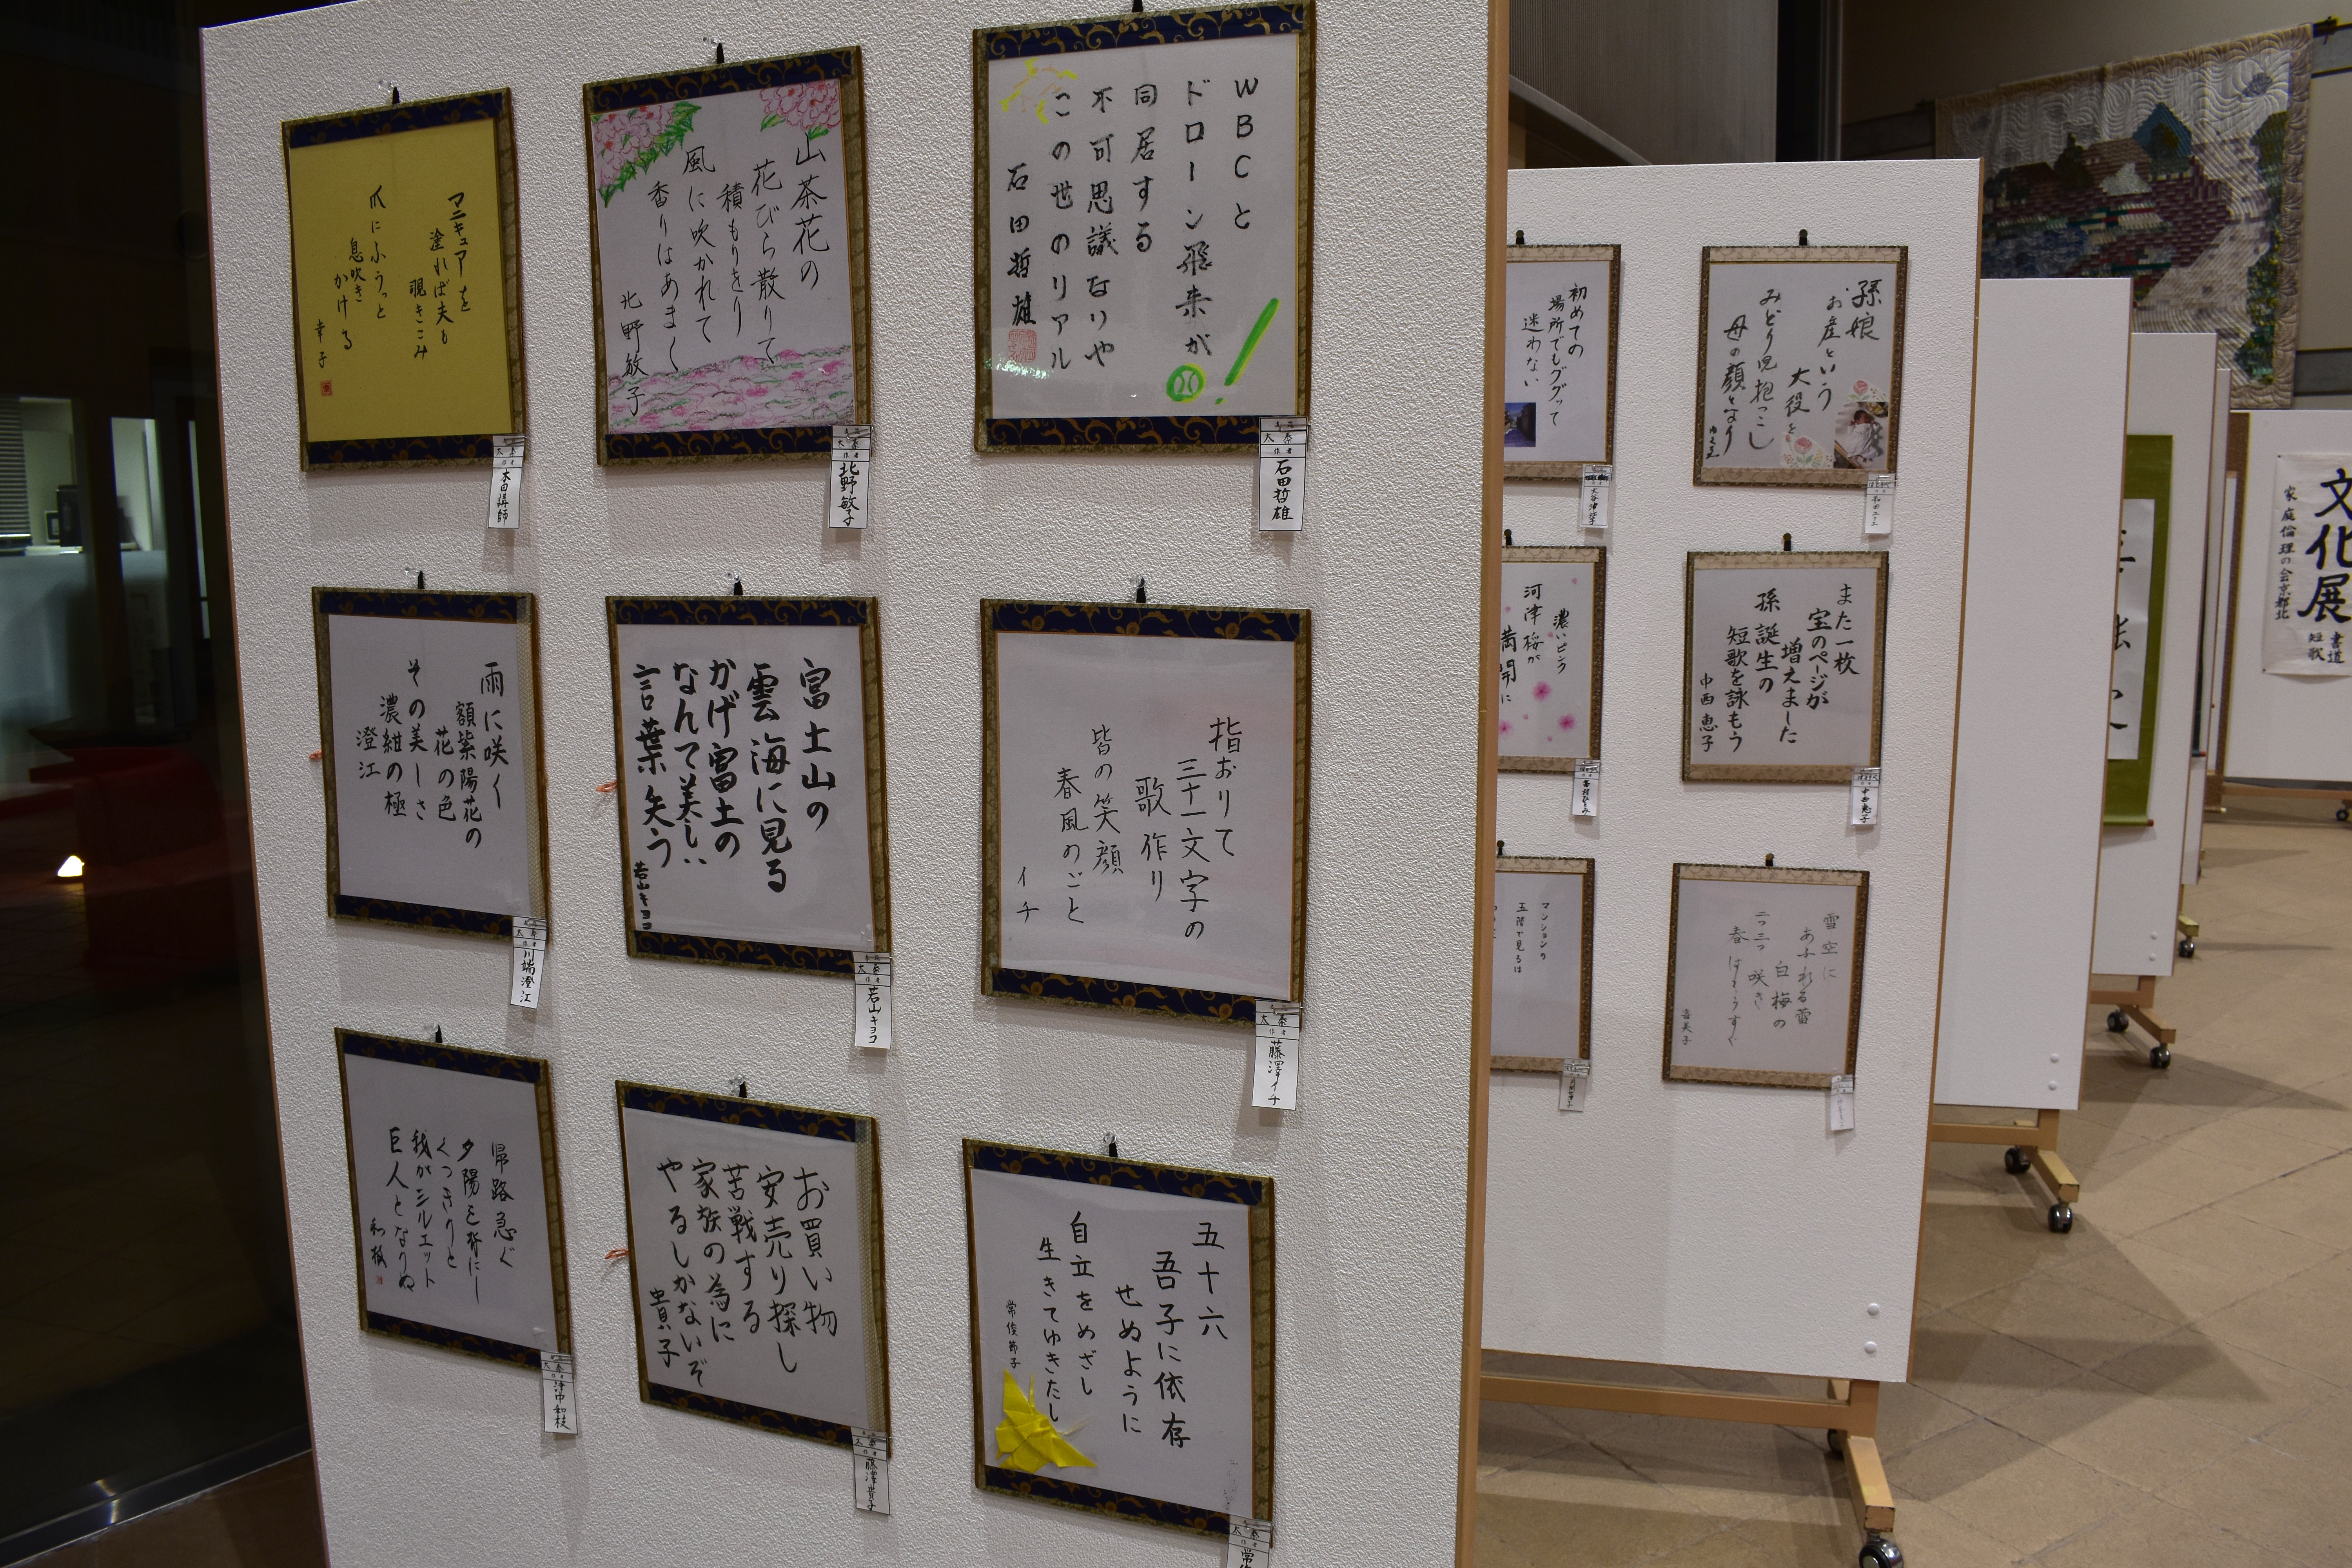 WBCと
ドローン飛来が
同居する
不可思議なりや
この世のリアル
石田哲雄
石田哲雄
山茶花の
花びら散りて
積もりをり
風に吹かれて
香りはあまく
北野敏子
北野敏子
マニキュアを
塗れば夫も
覗きこみ
爪にふうっと
息吹き
かける
幸子
本田講師
指おりて
三十一文字の
歌作り
皆の笑顔
春風のごと
イチ
太秦
藤澤イチ
富士山の
雲海に見る
かげ富士の
なんて美しい
言葉失う
若山キヨコ
太秦
若山キヨコ
雨に咲く
額紫陽花の
花の色
その美しさ
濃紺の極
澄江
太秦
川端澄江
五十六
吾子に依存
せぬように
自立をめざし
生きてゆきたし
太秦
お買い物
安売り探し
苦戦する
家族の為に
やるしかないぞ
貴子
太秦
藤澤貴子
帰路急ぐ
夕陽を背にし
くっきりと
我がシルエット
巨人となりぬ
和枝
太秦
孫娘
お産という
大役を
みどり児抱っこし
母の顔となり
初めての
場所でもググッて
迷わない
また一枚
宝のページが
増えました
孫誕生の
短歌を詠もう
中西恵子
中西恵子
濃いピンク
河津桜が
満開に
雪空に
あふれる蕾
白梅の
二つ三つ咲き
春はもうすぐ
マンションの
五階で見るは
文化展
書道
短歌
家庭倫理の会京都北